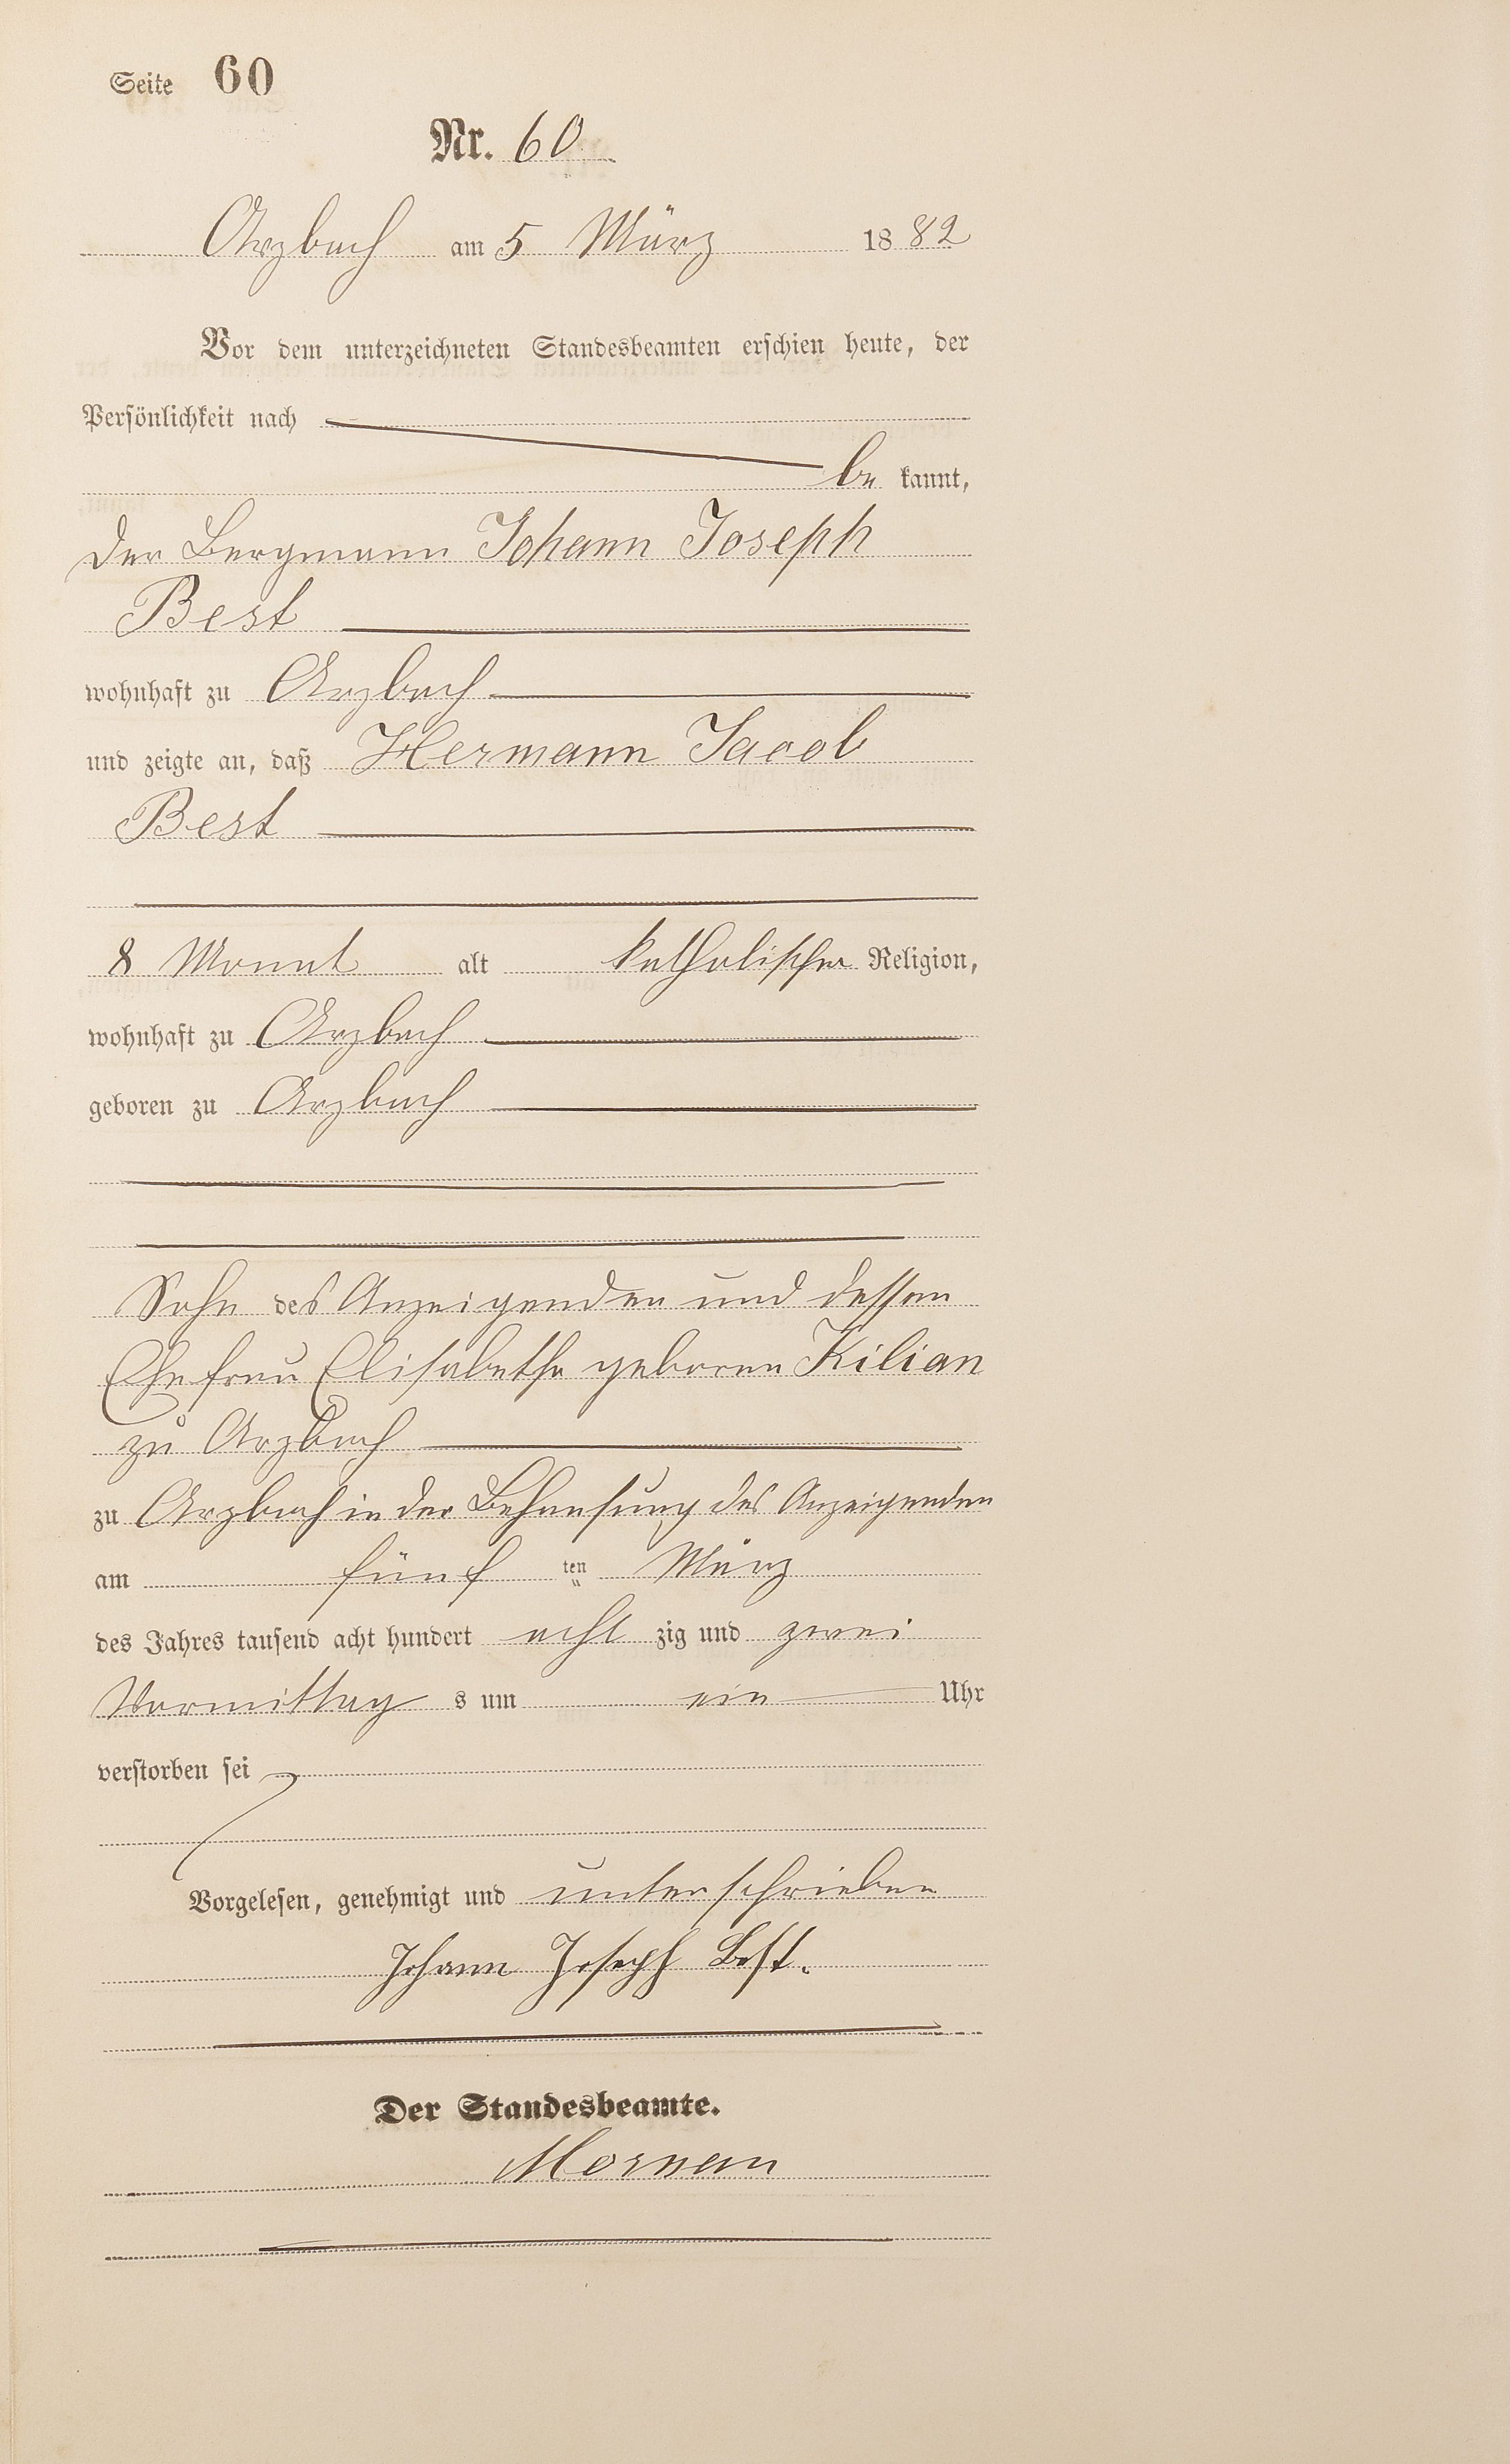 Seite 60
Nr. 60
Arzbach am 5 März 1882
Vor dem unterzeichneten Standesbeamten erschien heute, der
Persönlichkeit nach
be kannt,
der Bergmann Johann Joseph
Best
wohnhaft zu Arzbach
und zeigte an, daß Hermann Jacob
Best
8 Monat alt katholischer Religion,
wohnhaft zu Arzbach
geboren zu Arzbach
Sohn des Anzeigenden und dessen
Ehefrau Elisabetha geborene Kilian
zu Arzbach
zu Arzbach in der Behausung des Anzeigenden
am fünf ten März
des Jahres tausend acht hundert acht zig und zwei
Vormittag s um ein Uhr
verstorben sei
Vorgelesen, genehmigt und unterschrieben
Johann Joseph Best.
Der Standesbeamte.